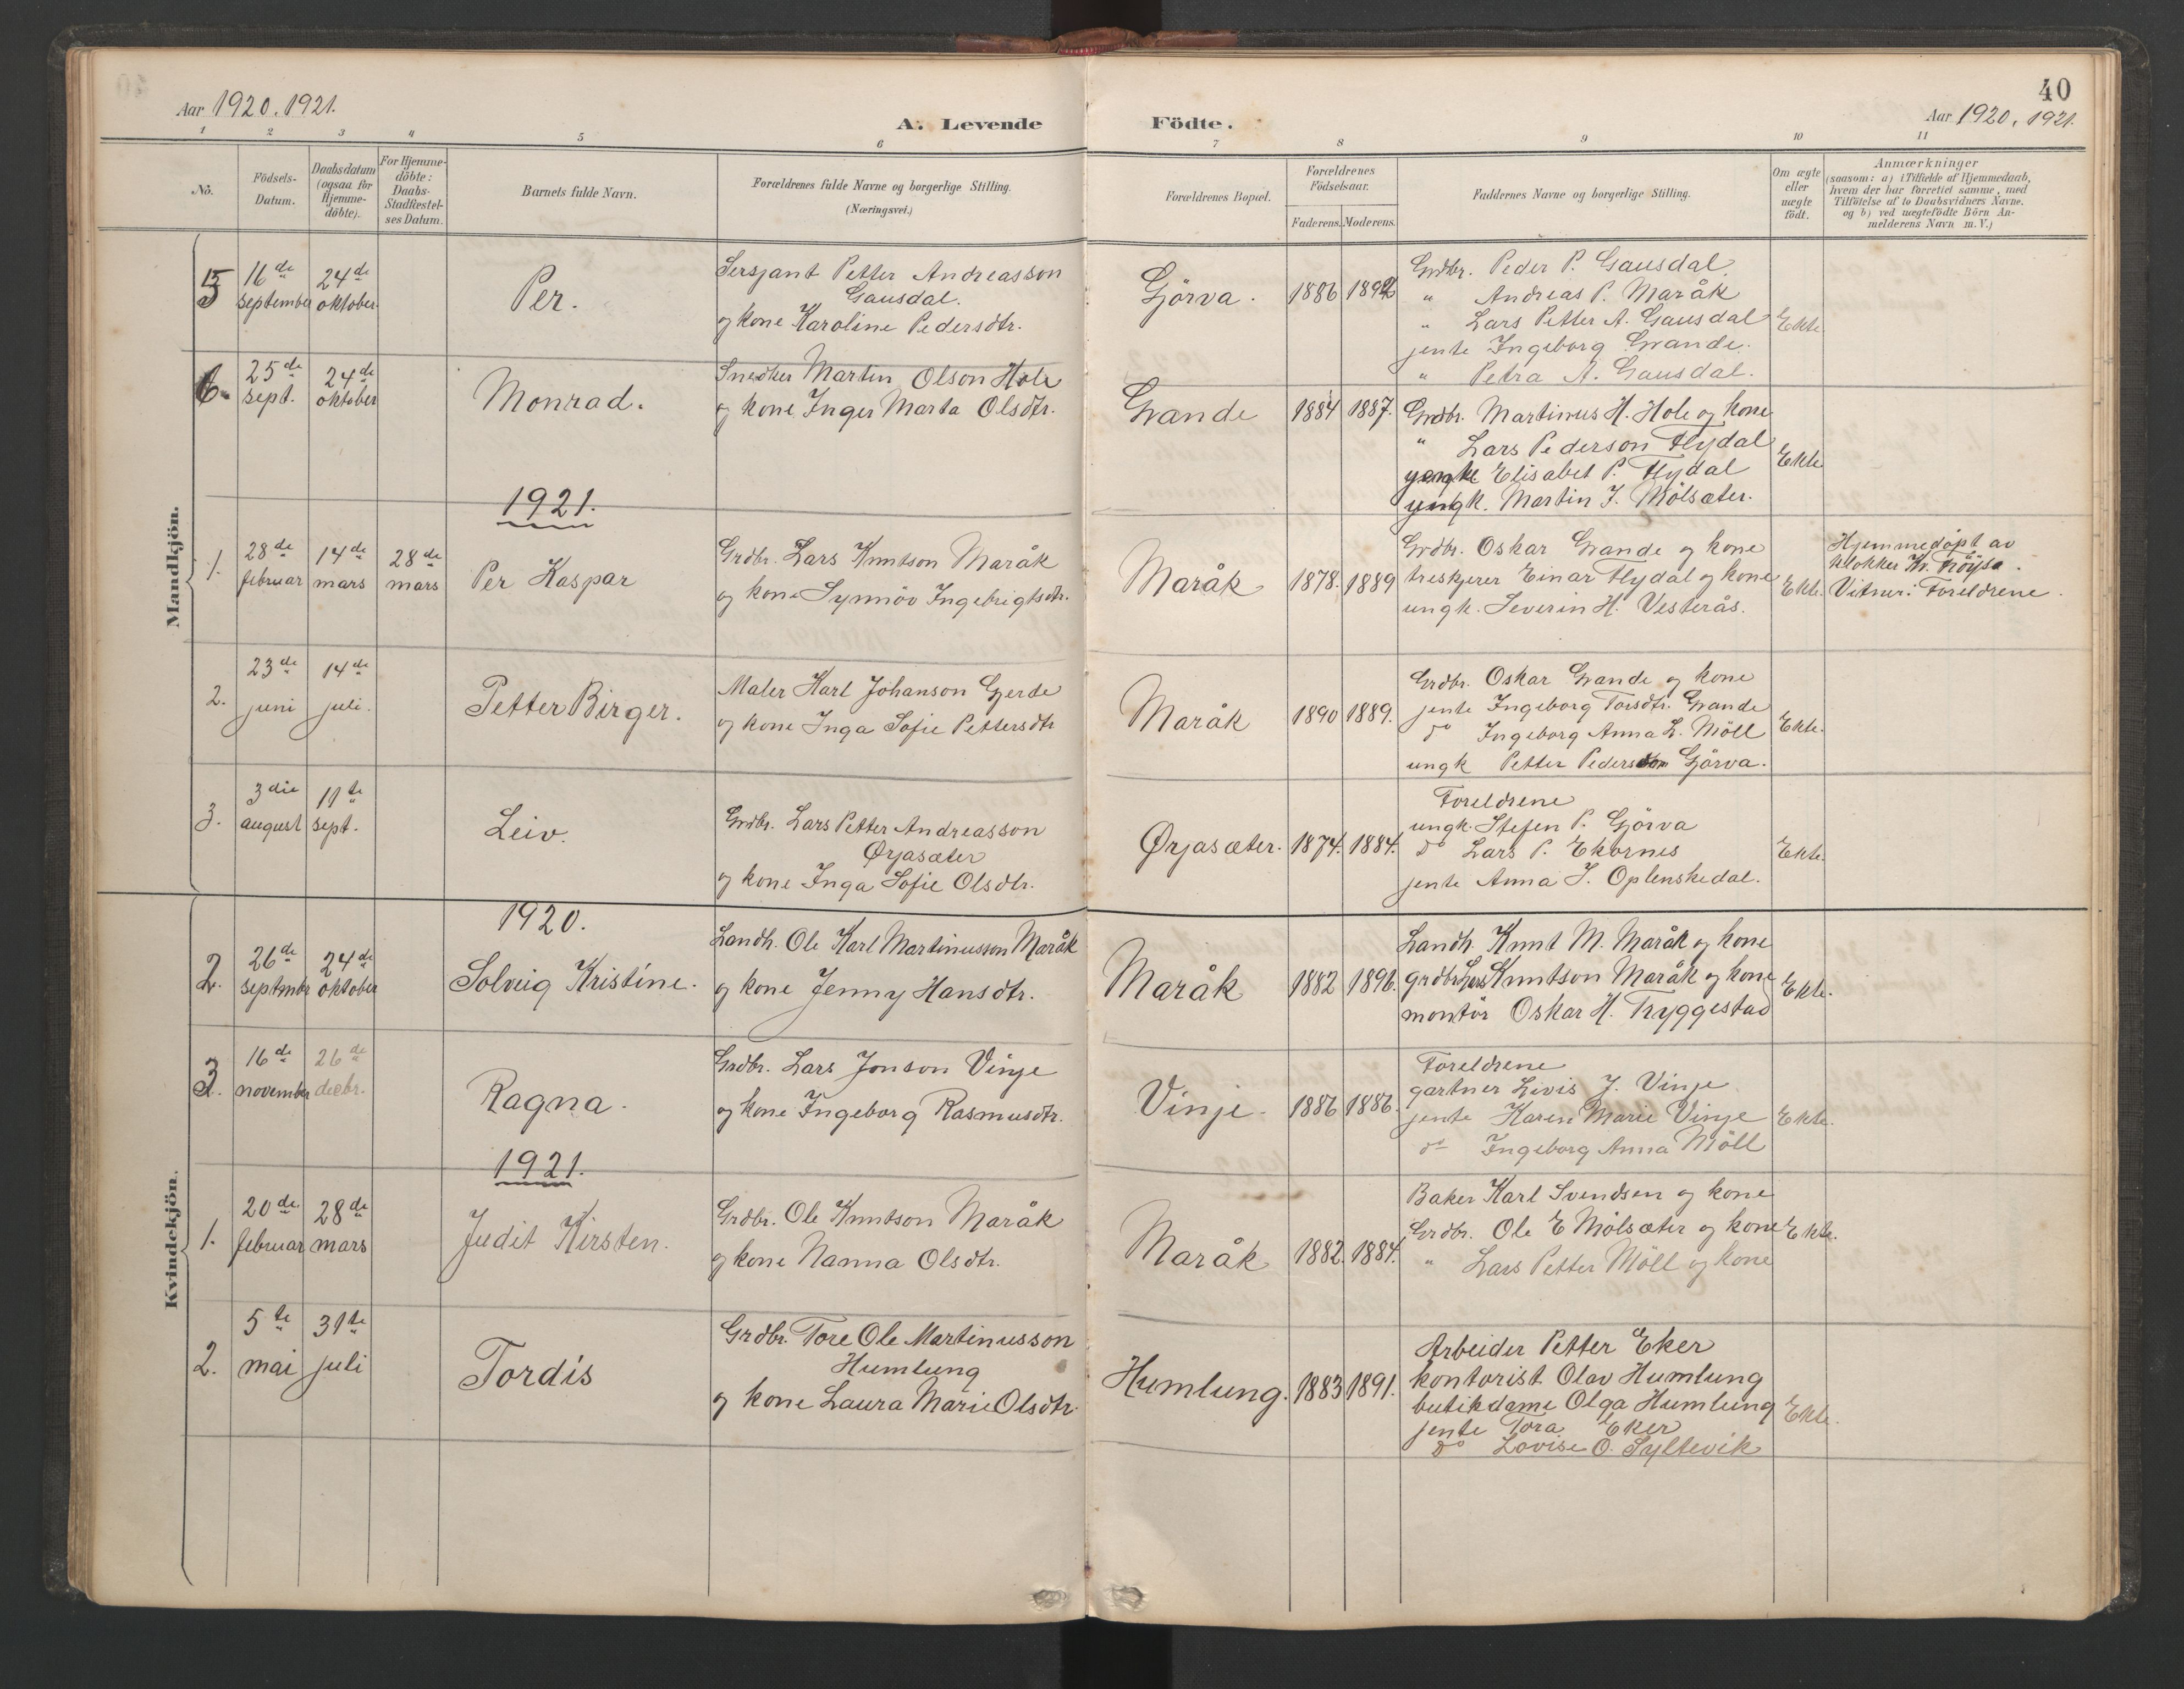 40
Aar 1920. 1921.
A. Levende Födte.
Aar 1920, 1921.
1 2 3 4 5 6 7 8 9 10 11
No.
Födsels-Datum.
Daabsdatum (ogsaa for Hjemme-döbte).
For Hjemme-döbte: Daabs-Stadfæstel-ses Datum.
Barnets fulde Navn.
Forældrenes fulde Navne og borgerlige Stilling.
(Næringsvei.)
Forældrenes Bopæl.
Forældrenes Födselsaar.
Faderens. Moderens.
Faddernes Navne og borgerlige Stilling.
Om ægte eller uægte födt.
Anmærkninger
(saasom: a) i Tilfælde af Hjemmedaab,
hvem der har forrettet samme, med
Tilföielse af to Daabsvidners Navne.
og b) ved uægtefödte Börn An-
melderens Navn m. V.)
Mandkjön.
5 16de september 24de oktober
Per.
Sersjant Petter Andreasson
Gausdal.
og kone Karoline Pedersdtr.
Gjörva. 1886 1892
Grdbr. Peder P. Gausdal.
" Andreas P. Maråk
" Lars Petter A. Gausdal
jente Ingeborg Grande.
" Petra A. Gausdal.
Ekte
6. 25de sept. 24de oktober
Monrad.
Snedker Martin Olson Hole
og kone Inger Marta Olsdtr.
Grande 1884 1887.
Grdbr. Martinus H. Hole og kone
" Lars Pederson Flydal
jente Elisabet P. Flydal
ungk. Martin J. Mölsæter.
Ekte
1921.
1. 28de februar 14de mars 28de mars
Per Kaspar
Grdbr. Lars Knutson Maråk
og kone Synnöv Ingebrigtsdtr.
Maråk 1878. 1889
Grdbr. Oskar Grande og kone
treskjerer Einar Flydal og kone
ungk. Severin H. Vesterås.
Ekte.
Hjemmedöpt av
klokker Kr. Fröysa.
Vitner: Foreldrene.
2. 23de juni 14de juli.
Petter Birger.
Maler Karl Johanson Gjerde
og kone Inga Sofie Pettersdtr
Maråk 1890 1889.
Grdbr. Oskar Grande og kone
jente Ingeborg Torsdtr. Grande
do Ingeborg Anna L. Möll
ungk Petter Pederson Gjörva.
Ekte.
3. 3die august 11te sept.
Leiv.
Grdbr. Lars Petter Andreasson
Ørjasæter
og kone Inga Sofie Olsdtr.
Ørjasæter. 1874. 1884.
Foreldrene
ungk. Stefen P. Gjörva
do Lars P. Ekornes
jente Anna J. Oplenskedal.
Ekte.
Kvindekjön.
1920.
2. 26de septmbr 24de oktober
Solveig Kristine.
Landh. Ole Karl Martinusson Maråk
og kone Jenny Hansdtr.
Maråk 1882 1896.
Landh. Knut M. Maråk og kone
grdbr Lars Knutson Maråk og kone
montör Oskar H. Tryggestad
Ekte.
3. 16de november 26de decbr.
Ragna.
Grdbr. Lars Jonson Vinje
og kone Ingeborg Rasmusdtr.
Vinje. 1886 1886.
Foreldrene
gartner Livis J. Vinje
jente Karen Marie Vinje
do Ingeborg Anna Möll
Ekte.
1921.
1. 20de februar 28de mars
Judit Kirsten.
Grdbr. Ole Knutson Maråk
og kone Nanna Olsdtr.
Maråk 1882. 1884.
Baker Karl Svendsen og kone
Grdbr. Ole E Mölsæter og kone
" Lars Petter Möll og kone
Ekte.
2. 5te mai 31te juli
Tordis
Grdbr. Tore Ole Martinusson
Humlung
og kone Laura Marie Olsdtr.
Humlung. 1883 1891.
Arbeider Petter Eker
kontorist Olav Humlung
butikdame Olga Humlung
jente Tora Eker
do Lovise O. Syltevik
Ekte.